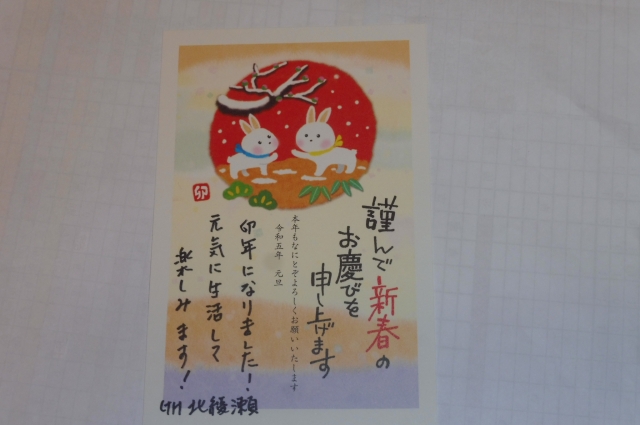 謹んで新春の
お慶びを
申し上げます
本年もなにとぞよろしくお願いいたします
令和五年 元旦
卯年になりました!
元気に生活して
楽しみます!
GH北綾瀬
卯